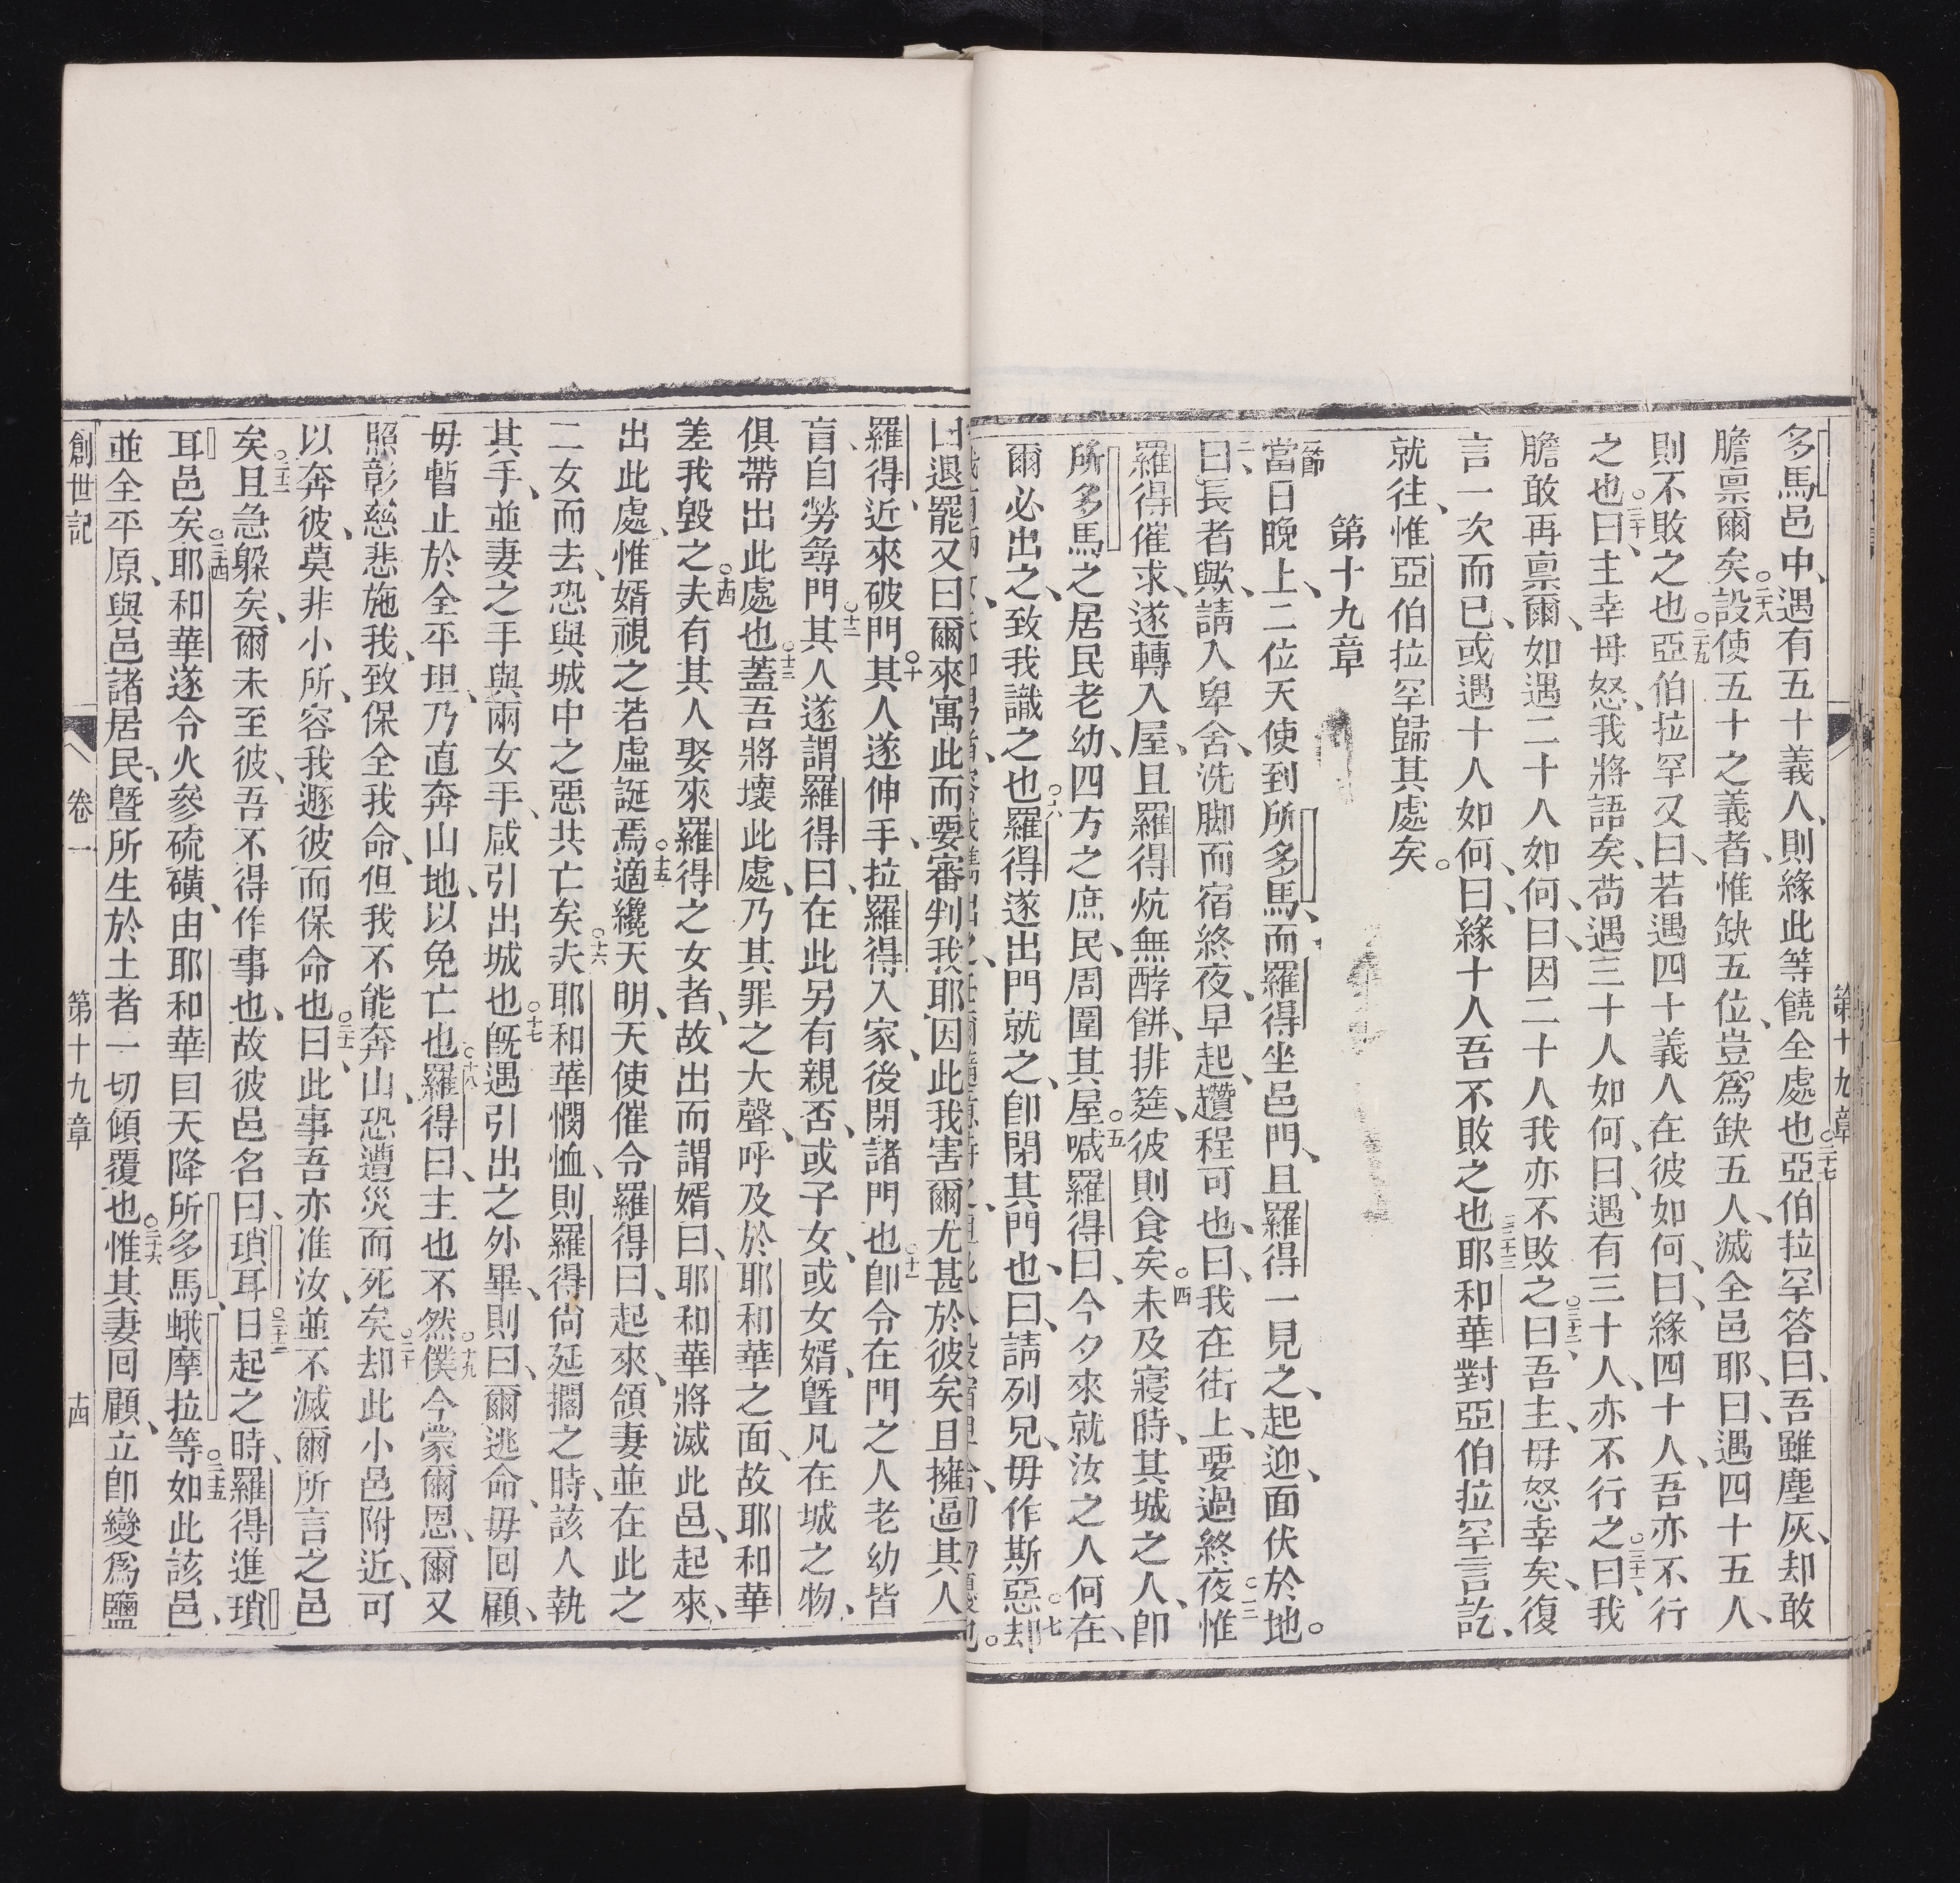 多馬邑中、遇有五十義人、則緣此等饒全處也○二十七亞伯拉罕答曰、吾雖塵灰、却敢
膽禀爾矣○二十八設使五十之義者、惟缺五位、豈爲缺五人、滅全邑耶、曰、遇四十五人、
則不敗之也○二十九亞伯拉罕又曰、若遇四十義人在彼如何、曰、緣四十人、吾亦不行
之也○三十曰、主幸毋怒、我將語矣、苟遇三十人如何、曰、遇有三十人、亦不行之○三十一曰、我
膽敢再禀爾、如遇二十人如何、曰、因二十人我亦不敗之○三十二曰、吾主、毋怒幸矣、復
言一次而已、或遇十人如何、曰、緣十人吾不敗之也○三十三耶和華對亞伯拉罕言訖、
就往、惟亞伯拉罕歸其處矣。
第十九章
一節當日晚上、二位天使到所多馬、而羅得坐邑門、且羅得一見之、起迎、面伏於地。
二曰、長者歟、請入卑舍、洗脚而宿終夜、早起、趲程可也、曰、我在街上、要過終夜○三惟
羅得催求、遂轉入屋、且羅得炕無酵餅、排筵、彼則食矣○四未及寢時、其城之人、卽
所多馬之居民老幼、四方之庶民、周圍其屋○五喊羅得曰、今夕來就汝之人何在、
爾必出之、致我識之也○六羅得遂出門就之、卽閉其門也、曰、請列兄、毋作斯惡○七却
曰退罷又曰爾來寓此而要審判我耶因此我害爾尤甚於彼矣且擁逼其人
羅得、近來破門○十其人遂伸手、拉羅得入家、後閉諸門也○十一卽令在門之人老幼皆
盲、自勞尋門○十二其人遂謂羅得曰、在此另有親否、或子女、或女婿、曁凡在城之物、
俱帶出此處也○十三蓋吾將壞此處、乃其罪之大聲、呼及於耶和華之面、故耶和華
差我毀之○十四夫有其人娶來羅得之女者、故出而謂婿曰、耶和華將滅此邑、起來、
出此處、惟婿視之若虛誕焉○十五適纔天明、天使催令羅得曰、起來、領妻並在此之
二女而去、恐與城中之惡共亡矣○十六夫耶和華憫恤、則羅得尙延擱之時、該人執
其手、並妻之手與兩女手、咸引出城也○十七旣遇引出之外畢、則曰、爾逃命、毋回顧、
毋暫止於全平坦、乃直奔山地、以免亡也○十八羅得曰、主也不然○十九僕今蒙爾恩、爾又
照彰慈悲施我、致保全我命、但我不能奔山、恐遭災而死矣○二十却此小邑附近、可
以奔彼、莫非小所、容我遯彼而保命也○二十一曰、此事吾亦准汝、並不滅爾所言之邑
矣○二十二且急躱矣、爾未至彼、吾不得作事也、故彼邑名曰、瑣耳○二十三日起之時、羅得進瑣
耳邑矣○二十四耶和華遂令火參硫磺、由耶和華自天降所多馬、蛾摩拉等○二十五如此該邑、
並全平原、與邑諸居民、曁所生於土者一切傾覆也○二十六惟其妻回顧、立卽變爲鹽
創世記 卷一 第十九章 十四